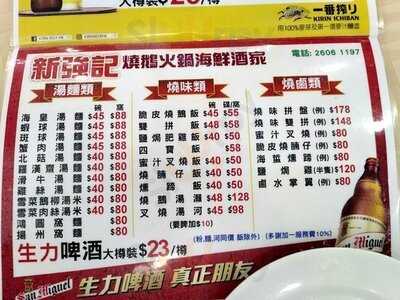 大樽裝$23/樽
一番搾り
KIRIN ICHIBAN
新強記 燒鵝火鍋海鮮酒家 電話: 2606 1197
湯麵類
碗 窩
海皇湯麵 $45 $88
蝦球湯麵 $45 $88
斑球湯麵 $45 $88
蟹肉湯麵 $40 $80
北菇湯麵 $40 $80
羅漢齋湯麵 $40 $80
滑牛湯麵 $40 $80
雞絲湯麵 $40 $80
雪菜鵝柳湯米 $40 $80
雪菜肉絲湯米 $40 $80
鴻圖窩麵 $80
揚州窩麵 $80
燒味類
碗 碟/窩
脆皮燒鵝飯 $45 $55
雙拼飯 $48 $58
鹽焗肥雞飯 $40 $50
四寶飯 $58
蜜汁叉燒飯 $40 $50
燒腩仔飯 $40 $50
燻蹄飯 $40 $50
燒鵝湯瀨 $48 $88
叉燒湯河 $45 $98
(要脾加$10)
燒鹵類
燒味拼盤 (例) $178
燒味雙拼 (例) $148
蜜汁叉燒 (例) $80
脆皮燒腩仔 (例) $80
海蜇燻蹄 (例) $80
鹽焗雞 (半隻) $120
鹵水掌翼 (例) $80
(粉,麵,河同價 飯除外) (多謝加一服務費10%)
生力啤酒 大樽裝 $23/樽
San Miguel 生力啤酒 真正朋友
San Miguel